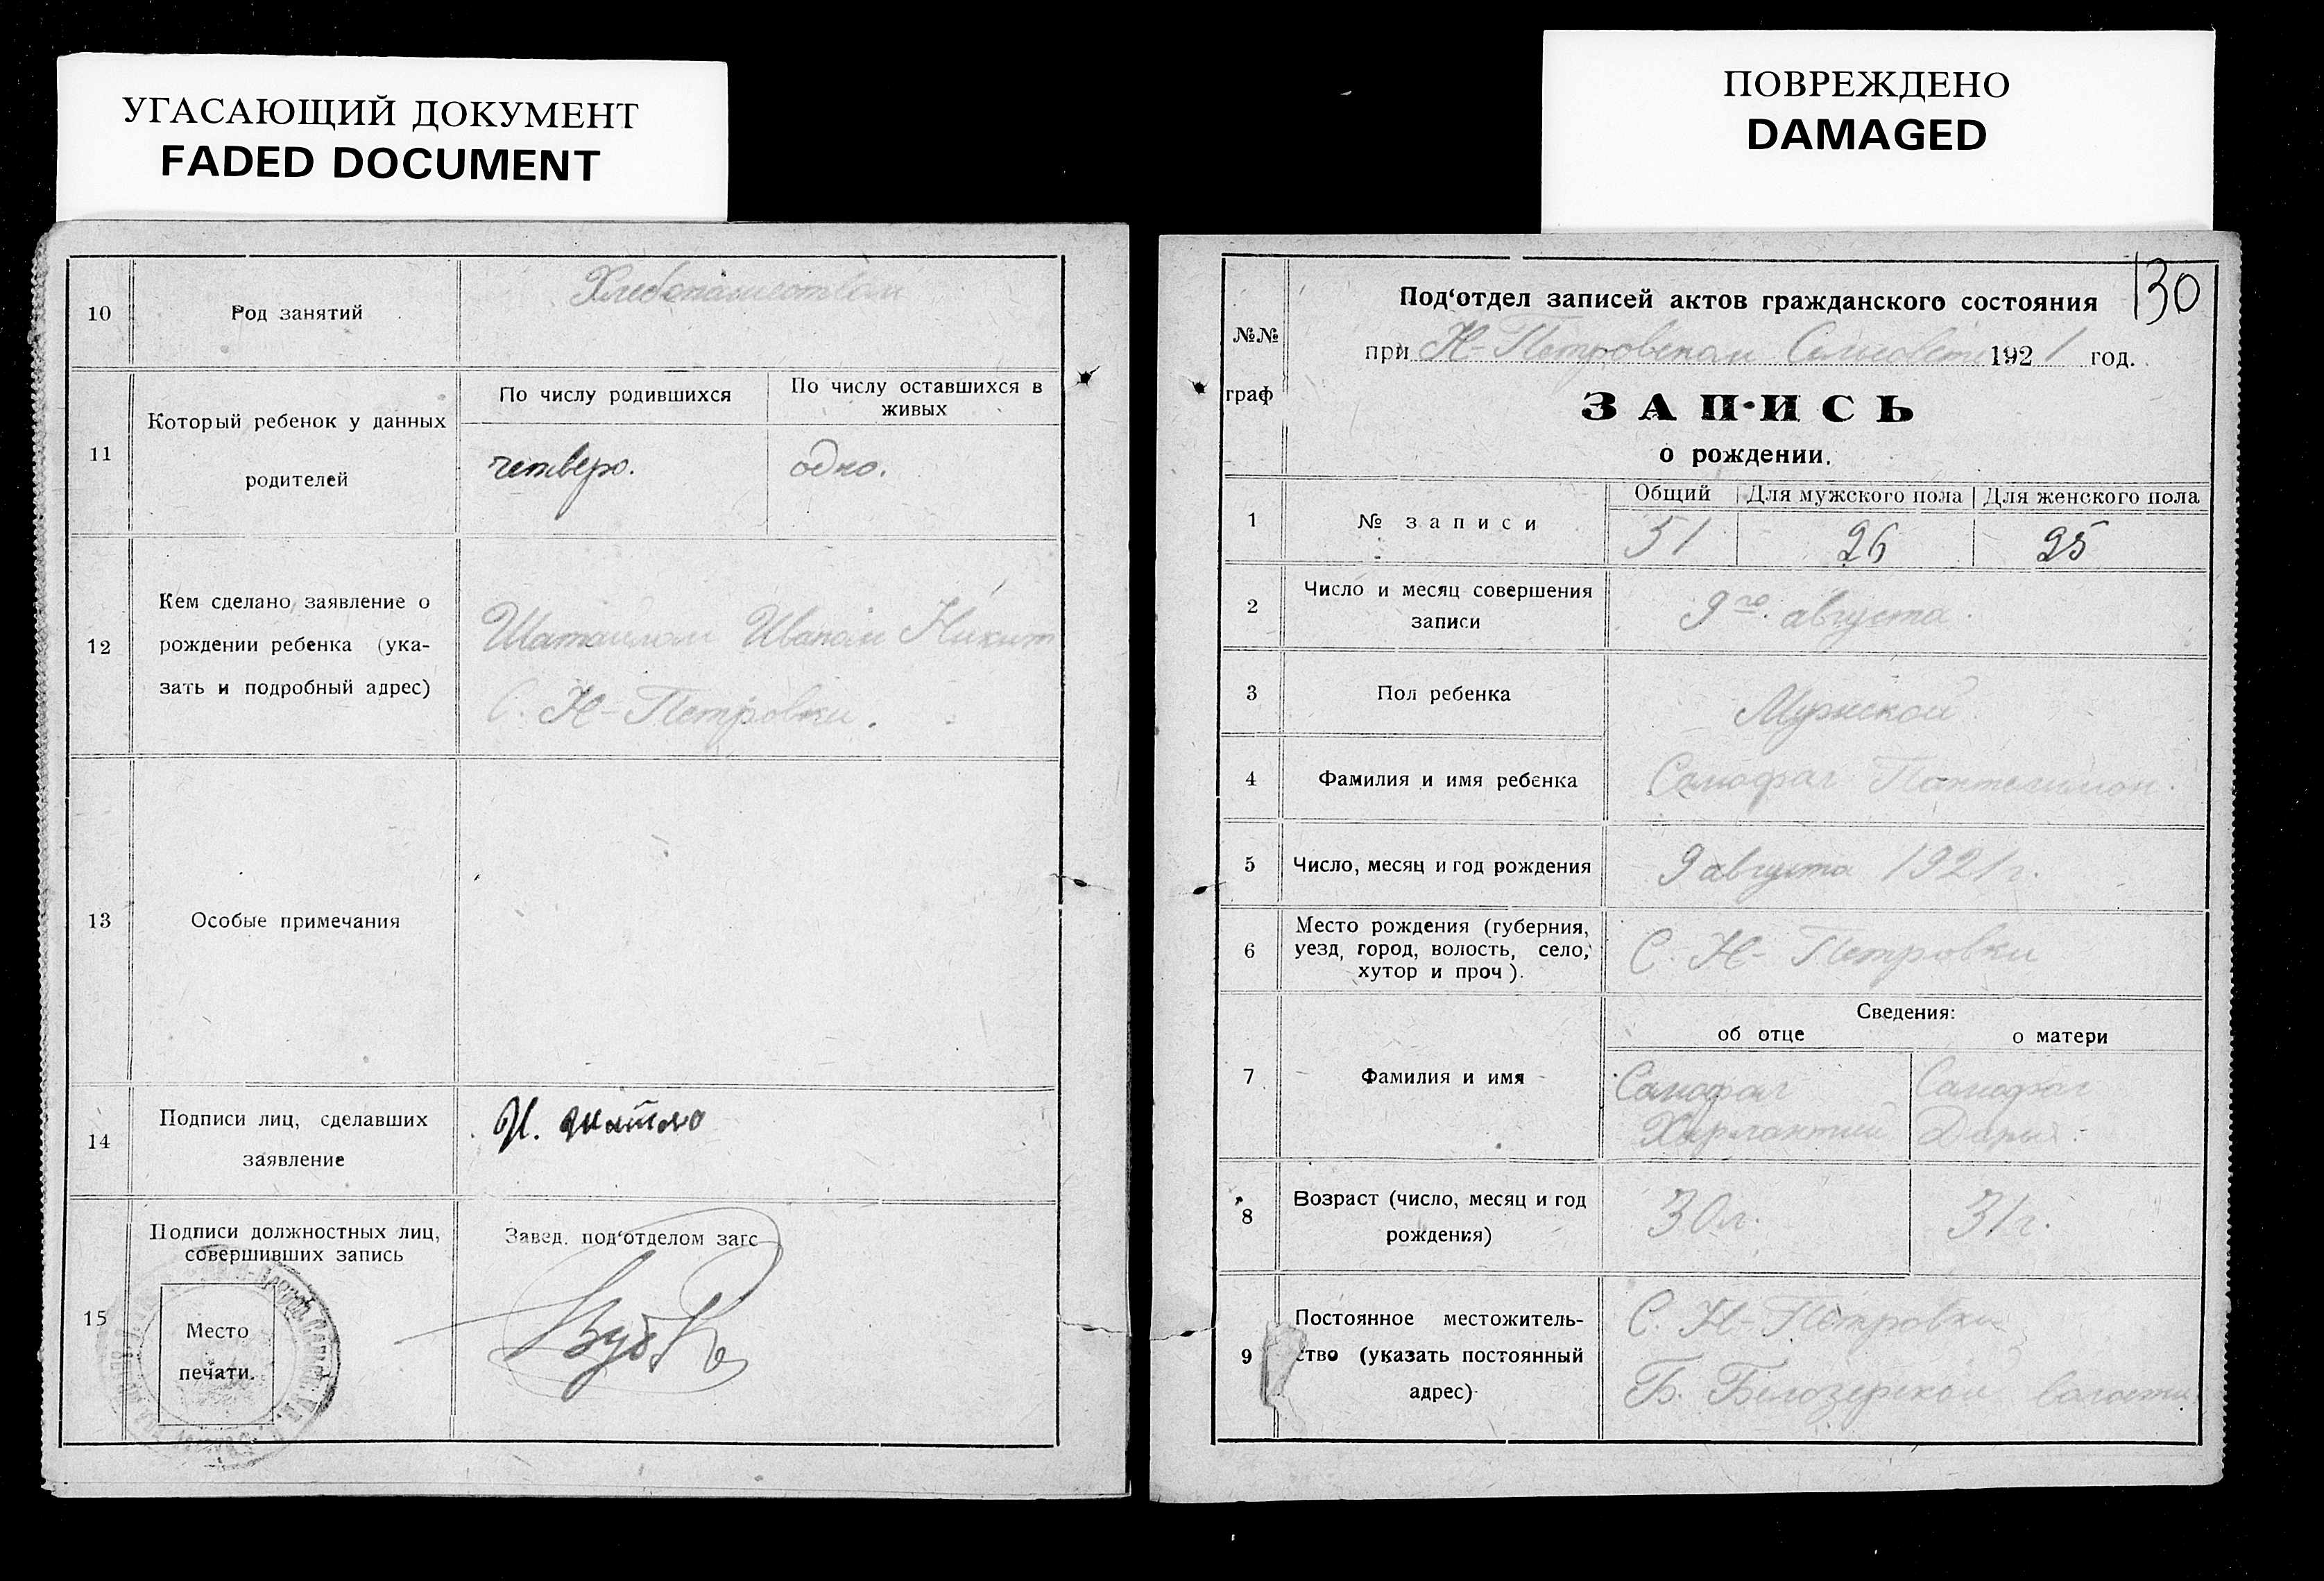 УГАСАЮЩИЙ ДОКУМЕНТ
FADED DOCUMENT
ПОВРЕЖДЕНО
DAMAGED
10
Род занятий
Хлебопашеством
11
Который ребенок у данных
родителей
По числу родившихся
По числу оставшихся в
живых
четверо.
одно.
12
Кем сделано заявление о
рождении ребенка (ука-
зать и подробный адрес)
Иваном Никит
С. Н-Петровки.
13
Особые примечания
14
Подписи лиц, сделавших
заявление
И.
15
Подписи должностных лиц,
совершивших запись
Место
печати.
Завед. под'отделом загс
130
№№
граф
Под'отдел записей актов гражданского состояния
при Н-Петровском Сельсовете 1921 год.
ЗАПИСЬ
о рождении.
1
№ записи
Общий
Для мужского пола
Для женского пола
51
26
25
2
Число и месяц совершения
записи
9го августа.
3
Пол ребенка
Мужской
4
Фамилия и имя ребенка
Самофал Пантелимон.
5
Число, месяц и год рождения
9 августа 1921 г.
6
Место рождения (губерния,
уезд, город, волость, село,
хутор и проч).
С. Н-Петровки
7
Фамилия и имя
Сведения:
об отце
о матери
Самофал
Харлантий
Самофал
Дарья
8
Возраст (число, месяц и год
рождения)
30 л.
31 г.
9
Постоянное местожитель-
ство (указать постоянный
адрес)
С. Н-Петровки
Б. Белозерской волости